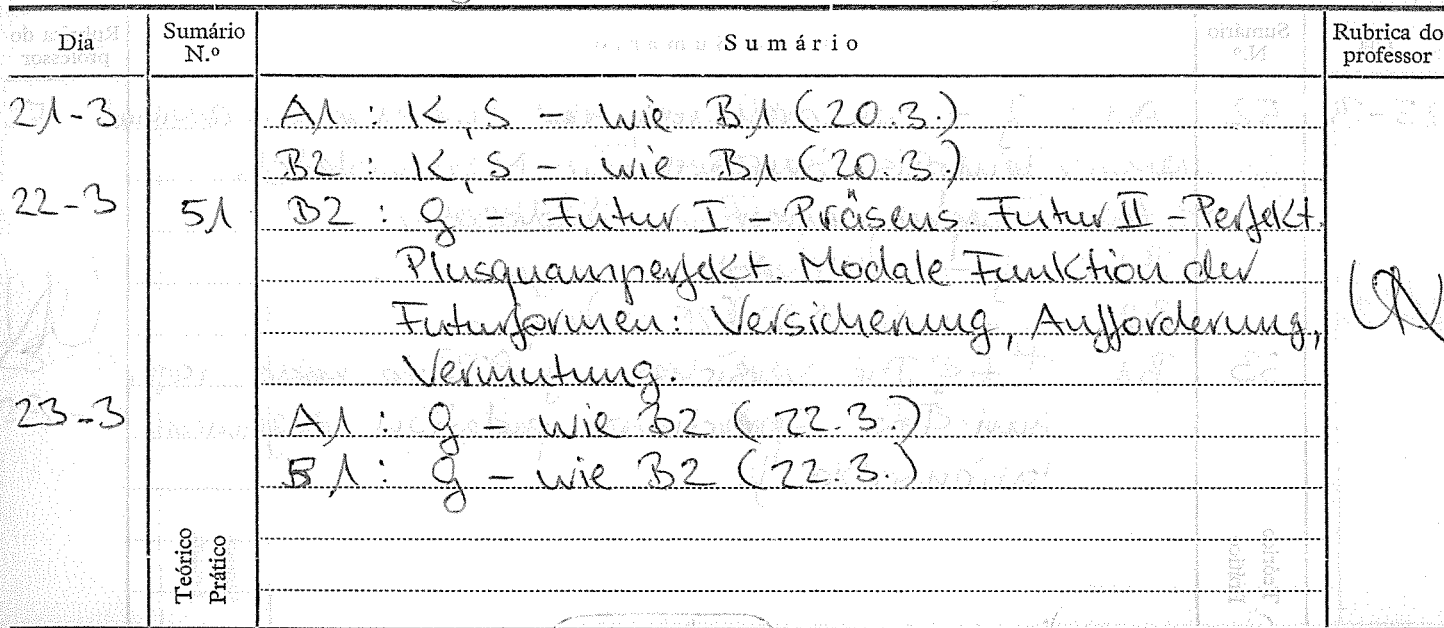 Dia Sumário N.º Sumário Rubrica do professor
21-3 A1 : K, S - wie B1 (20.3.)
B2 : K, S - wie B1 (20.3.)
22-3 51 B2 : g - Futur I - Präsens. Futur II - Perfekt.
Plusquamperfekt. Modale Funktion der
Futurformen: Versicherung, Aufforderung,
Vermutung.
23-3 A1 : g - wie B2 (22.3.)
B1 : g - wie B2 (22.3.)
Teórico
Prático